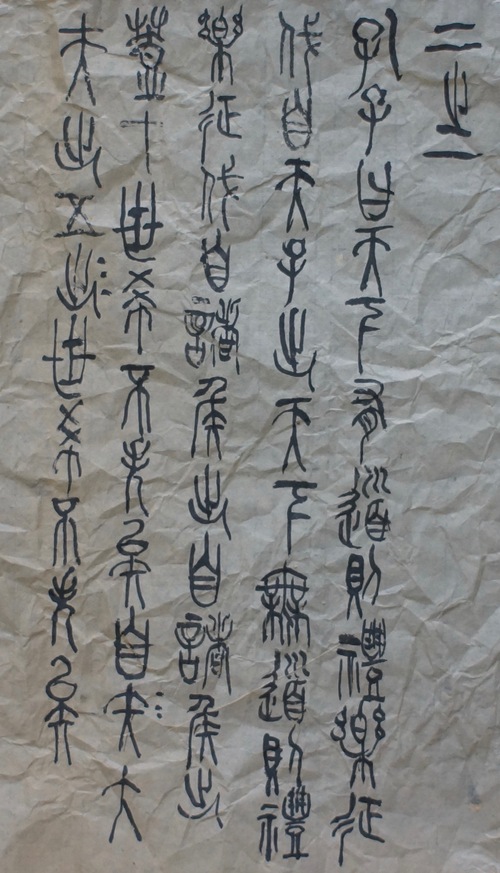 二之一
孔子曰天下有道則禮樂征
伐自天子出天下無道則禮
樂征伐自諸侯出自諸侯出
蓋十世希不失矣自夫大
夫出五出世希不失矣